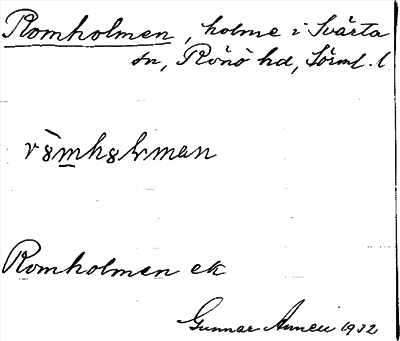 Romholmen, holme i Svärta
sn, Rönö hd, Sörml. l.
Romholmen ek
Gunnar 1932